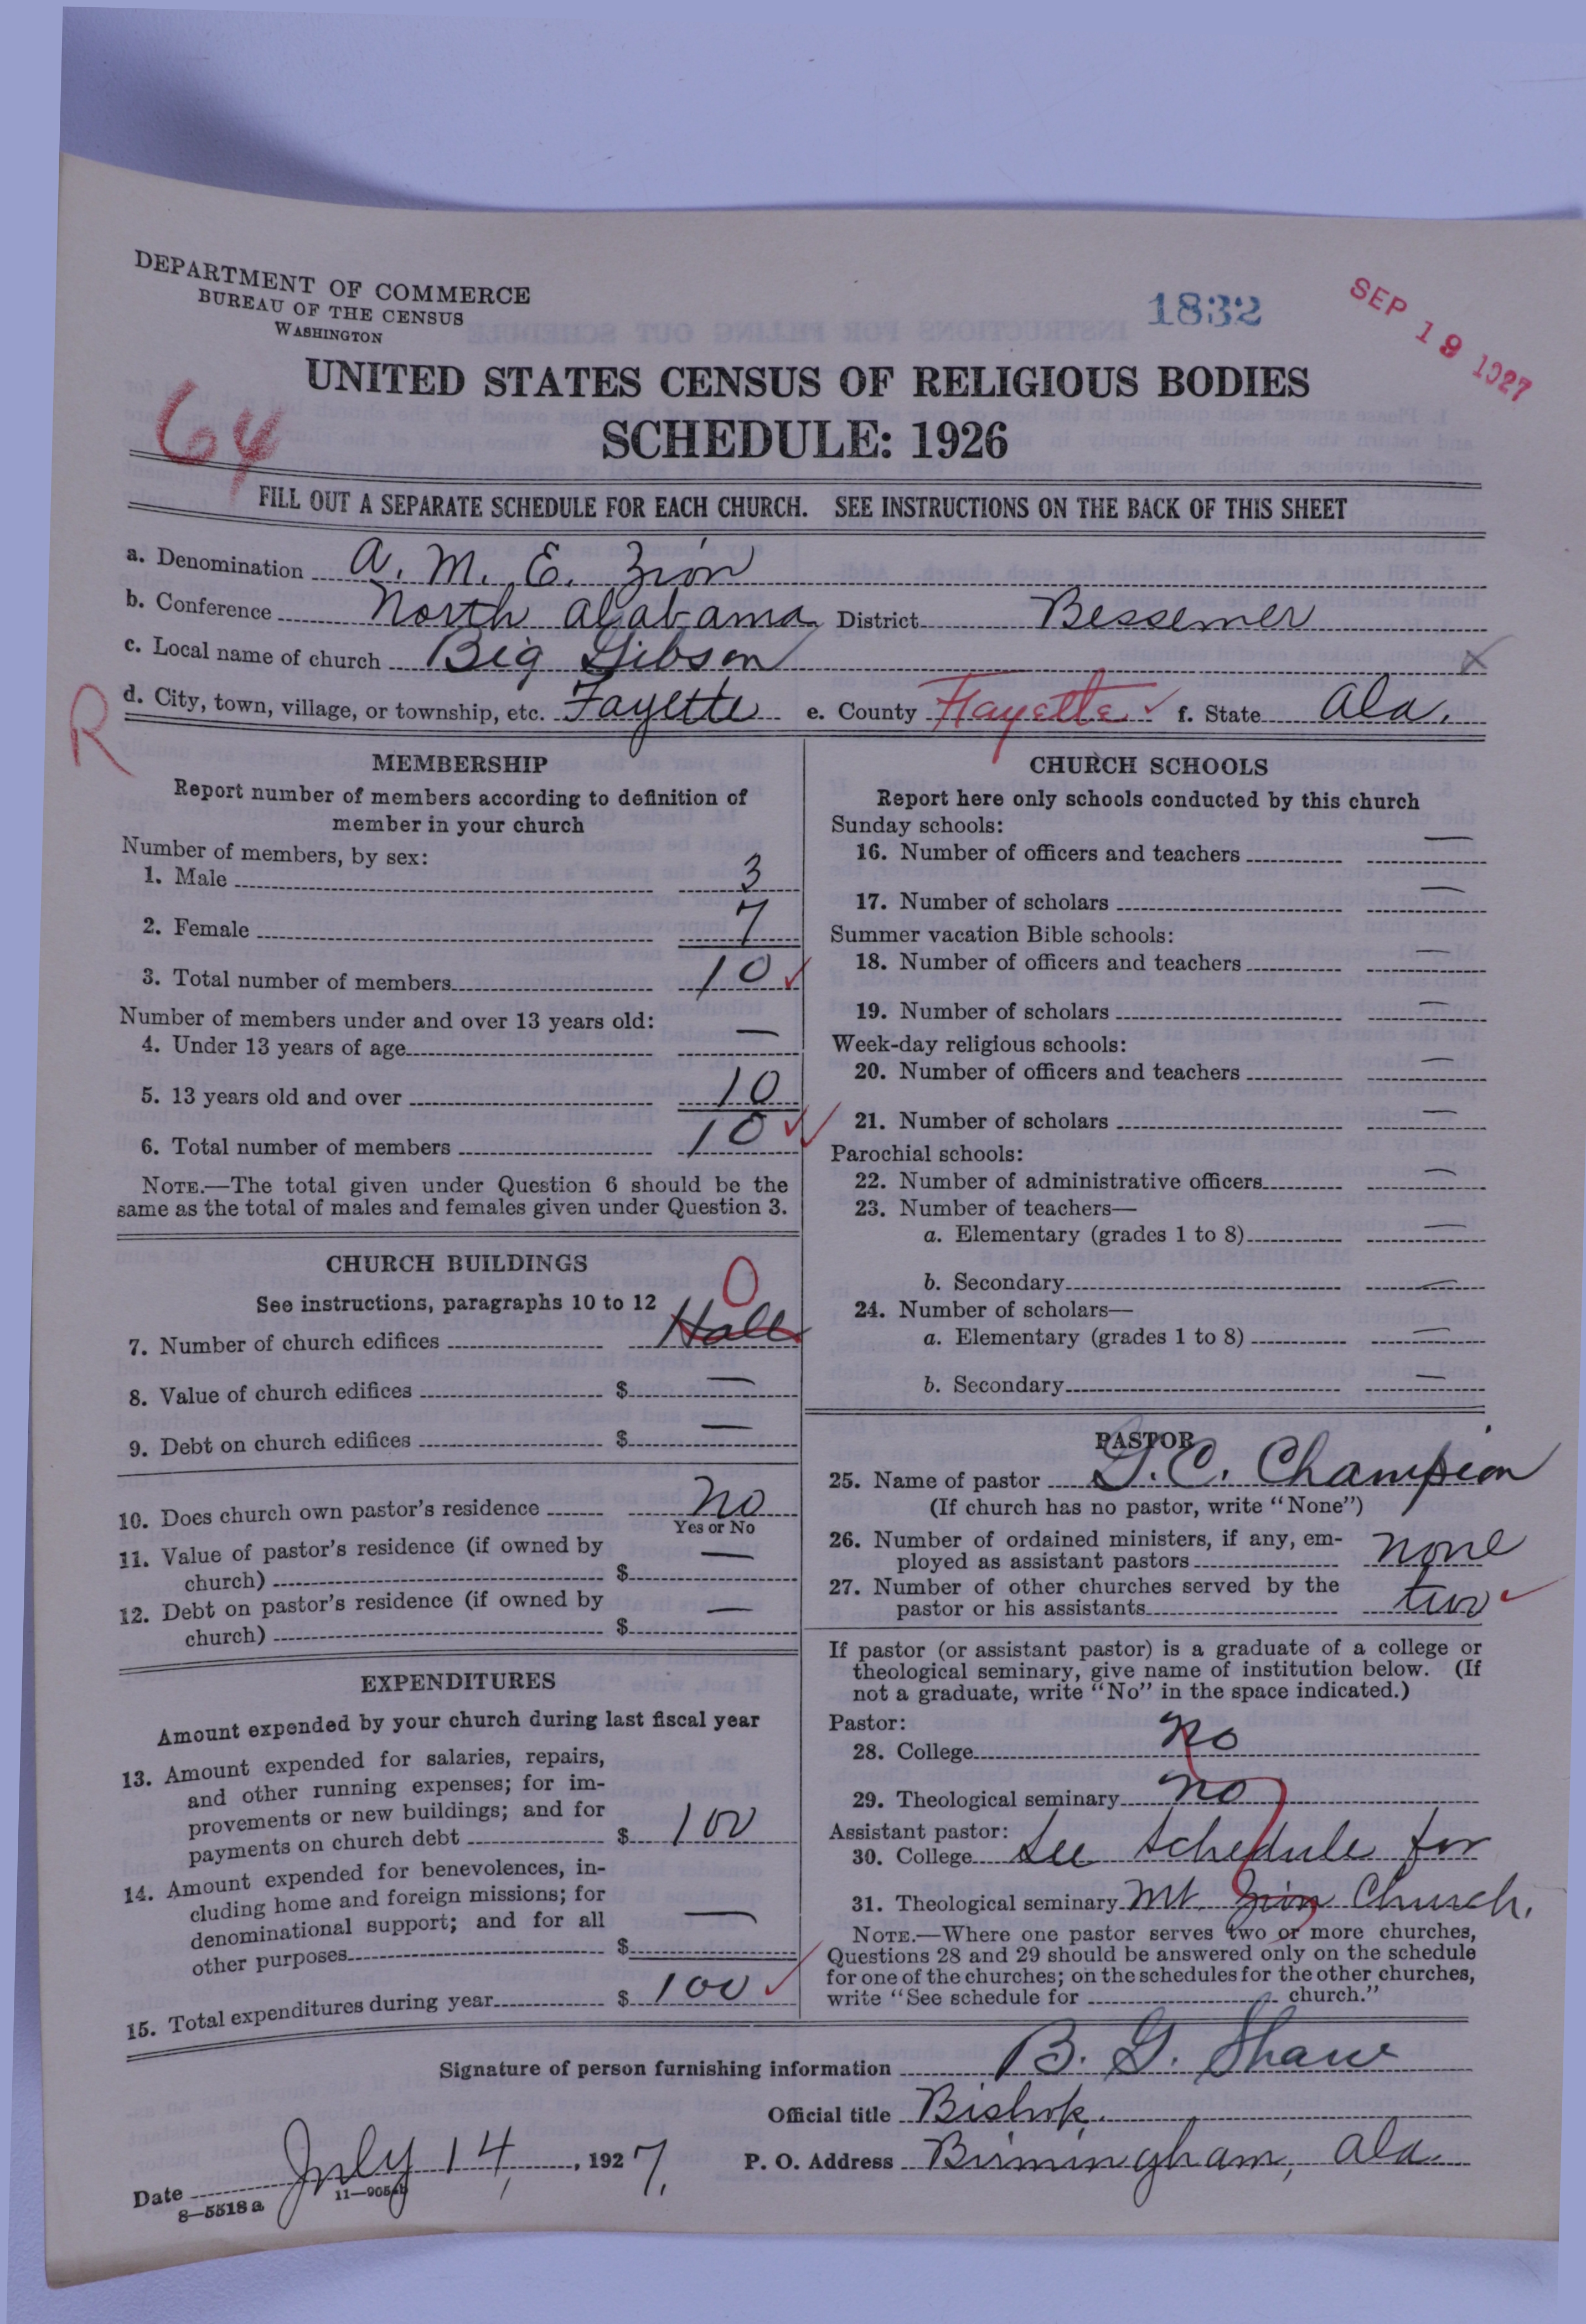 DEPARTMENT OF COMMERCE
BUREAU OF THE CENSUS
WASHINGTON
1832
SEP 19 1927
UNITED STATES CENSUS OF RELIGIOUS BODIES
SCHEDULE: 1926
64
FILL OUT A SEPARATE SCHEDULE FOR EACH CHURCH. SEE INSTRUCTIONS ON THE BACK OF THIS SHEET
a. Denomination A. M. E. Zion
b. Conference North Alabama District Bessemer
c. Local name of church Big Gibson x
R d. City, town, village, or township, etc. Fayette e. County Fayette ✓ f. State Ala.
MEMBERSHIP
Report number of members according to definition of
member in your church
Number of members, by sex:
1. Male 3
2. Female 7
3. Total number of members 10 ✓
Number of members under and over 13 years old:
4. Under 13 years of age —
5. 13 years old and over 10
6. Total number of members 10 ✓✓
NOTE.—The total given under Question 6 should be the
same as the total of males and females given under Question 3.
CHURCH BUILDINGS
See instructions, paragraphs 10 to 12 0
7. Number of church edifices Hall
8. Value of church edifices $ —
9. Debt on church edifices $ —
10. Does church own pastor's residence No
Yes or No
11. Value of pastor's residence (if owned by
church) $ —
12. Debt on pastor's residence (if owned by
church) $ —
EXPENDITURES
Amount expended by your church during last fiscal year
13. Amount expended for salaries, repairs,
and other running expenses; for im-
provements or new buildings; and for
payments on church debt $ 100
14. Amount expended for benevolences, in-
cluding home and foreign missions; for
denominational support; and for all
other purposes $ —
15. Total expenditures during year $ 100 ✓
CHURCH SCHOOLS
Report here only schools conducted by this church
Sunday schools:
16. Number of officers and teachers —
17. Number of scholars —
Summer vacation Bible schools:
18. Number of officers and teachers —
19. Number of scholars —
Week-day religious schools:
20. Number of officers and teachers —
21. Number of scholars —
Parochial schools:
22. Number of administrative officers —
23. Number of teachers—
a. Elementary (grades 1 to 8) —
b. Secondary —
24. Number of scholars—
a. Elementary (grades 1 to 8) —
b. Secondary —
PASTOR
25. Name of pastor G. C. Champion
(If church has no pastor, write "None")
26. Number of ordained ministers, if any, em-
ployed as assistant pastors none
27. Number of other churches served by the
pastor or his assistants two ✓
If pastor (or assistant pastor) is a graduate of a college or
theological seminary, give name of institution below. (If
not a graduate, write "No" in the space indicated.)
Pastor:
28. College No
29. Theological seminary No
Assistant pastor:
30. College See Schedule for
31. Theological seminary Mt. Zion Church.
NOTE.—Where one pastor serves two or more churches,
Questions 28 and 29 should be answered only on the schedule
for one of the churches; on the schedules for the other churches,
write "See schedule for church."
Signature of person furnishing information B. G. Shaw
Official title Bishop.
Date July 14, 1927. P. O. Address Birmingham, Ala.
8—5518 a